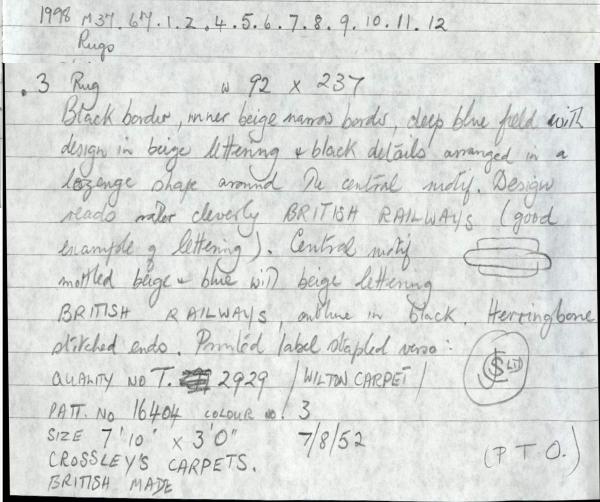 1998 M37.64.1.2.4.5.6.7.8.9.10.11.12
Rugs
.3 Rug W 92 x 237
Black border, inner beige narrow border, deep blue field with
design in beige lettering & black details, arranged in a
lozenge shape around the central motif. Design
reads rather cleverly BRITISH RAILWAYS (good
example of lettering). Central motif
mottled beige & blue with beige lettering
BRITISH RAILWAYS, outline in black. Herringbone
stitched ends. Printed label stapled verso:
QUALITY NO T. 2929 / WILTON CARPET /
PATT. NO 16404 COLOUR NO. 3
LTD
SIZE 7'10" x 3'0" 7/8/52
(P T O.)
CROSSLEY'S CARPETS.
BRITISH MADE